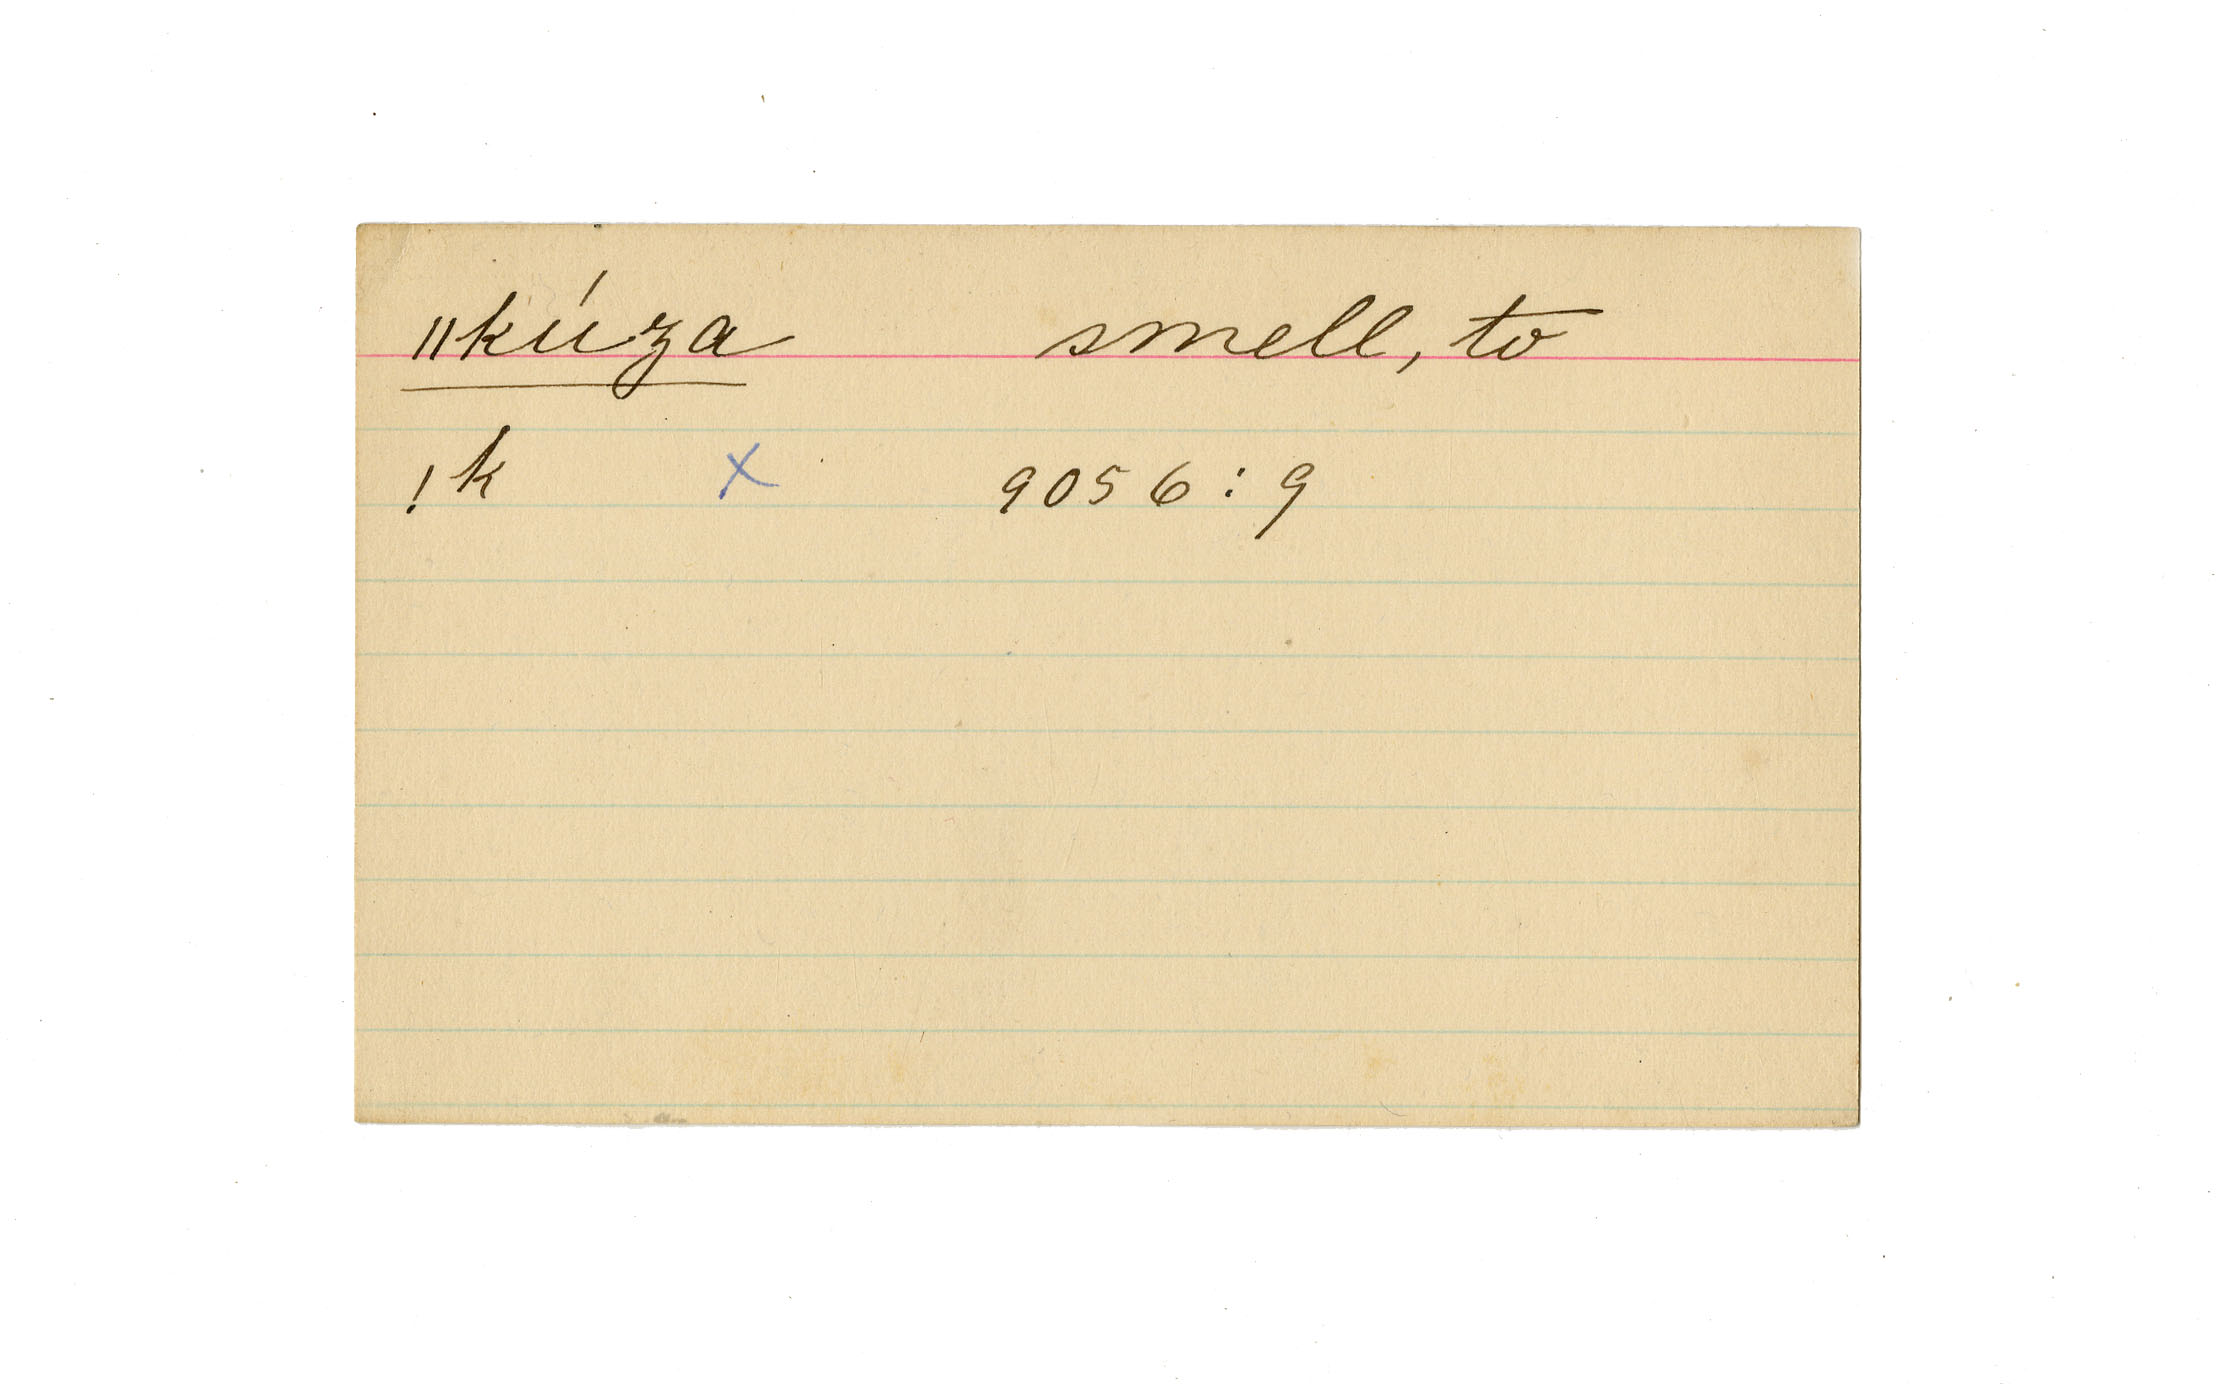 ǁkúza smell, to
!k x 9056:9